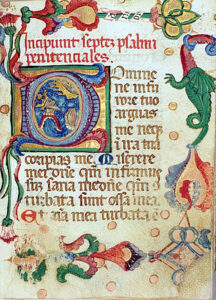 Incipiunt septez psalmi
penitenciales.
Domine
ne in fu
rore tuo
arguas
me neqz
i ira tua
corripias me. Miserere
mei dñe qm infirmus
suz sana me dñe qm
turbata sunt ossa mea
Et aia mea turbata